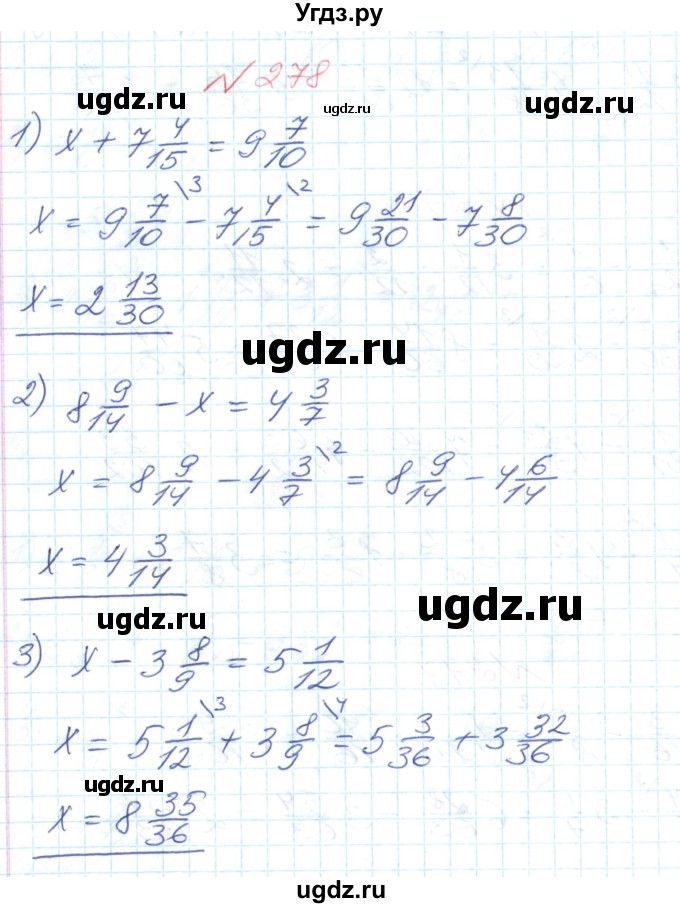 Угдз.ру
№ 278
ugdz.ru
ugdz.ru
1) x + 7 4/15 = 9 7/10
x = 9 7/10 \3 - 7 4/15 \2 = 9 21/30 - 7 8/30
ugdz.ru
ugdz.ru
x = 2 13/30
ugdz.ru
2) 8 9/14 - x = 4 3/7
x = 8 9/14 - 4 3/7 \2 = 8 9/14 - 4 6/14
ugdz.ru
ugdz.ru
x = 4 3/14
ugdz.ru
ugdz.ru
3) x - 3 8/9 = 5 1/12
x = 5 1/12 \3 + 3 8/9 \4 = 5 3/36 + 3 32/36
ugdz.ru
ugdz.ru
x = 8 35/36
ugdz.ru